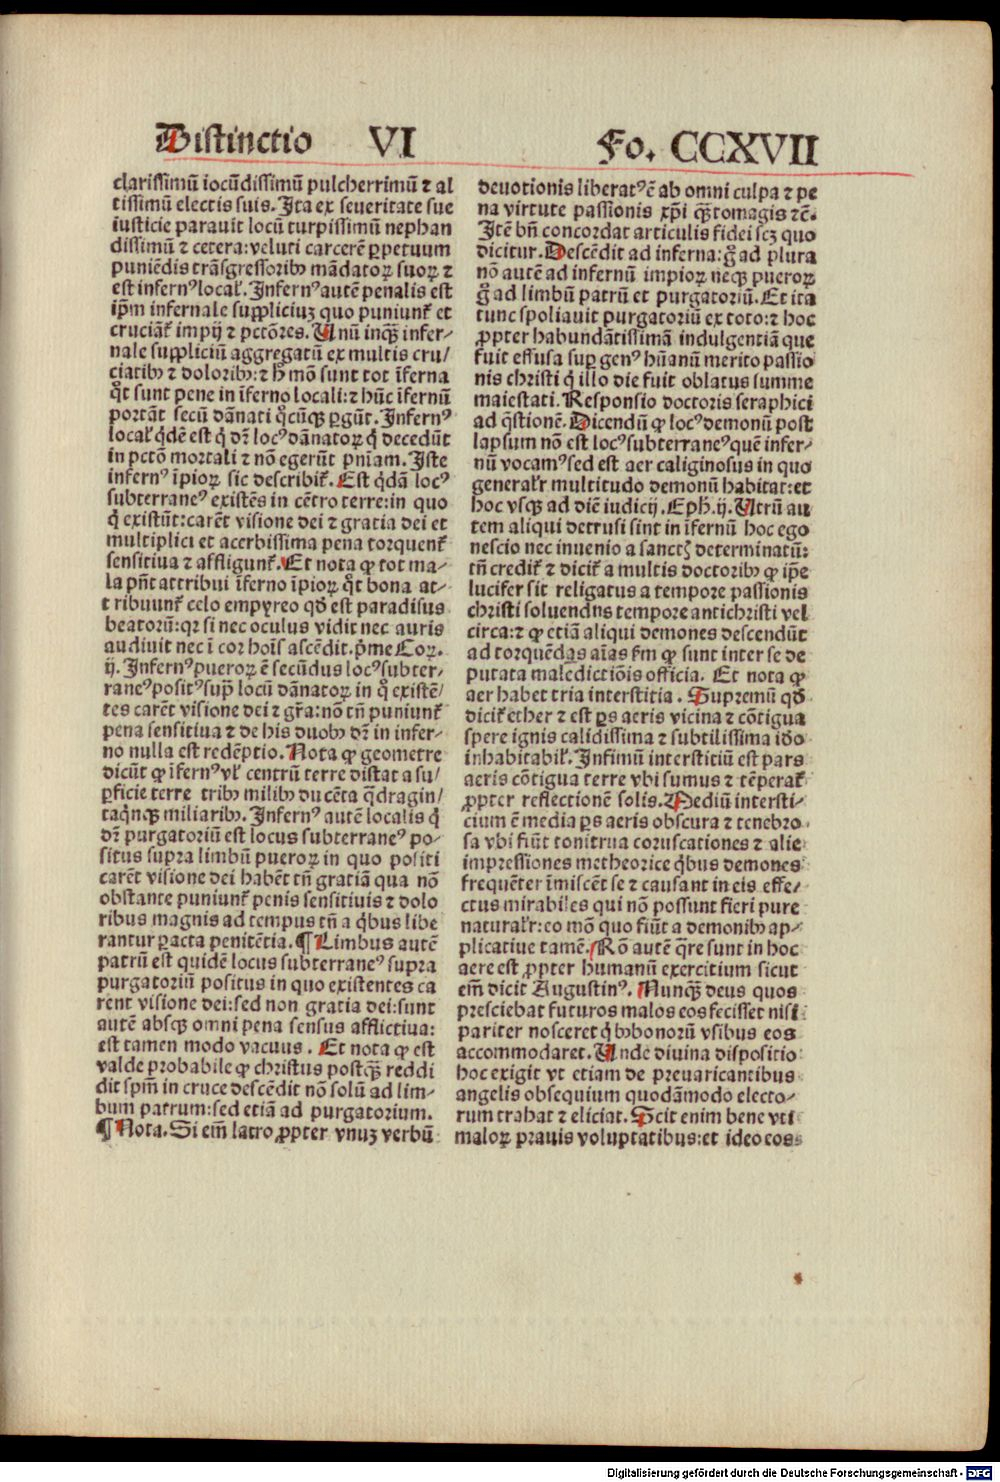 Distinctio VI Fo. CCXVII
clarissimū iocūdissimū pulcherrimū ⁊ al
tissimū electis suis. Ita ex seueritate sue
iusticie parauit locū turpissimū nephan
dissimū ⁊ cetera: veluti carcerē ꝑpetuum
puniēdis trāsgressoribꝰ mādatoꝝ suoꝝ ⁊
est infernꝰ local̕. Infernꝰ autē penalis est
ip̄m infernale suppliciuꝫ quo puniunt̕ et
cruciāt̕ impij ⁊ pctōres. Unū inqꝫ infer⸗
nale suppliciū aggregatū ex multis cru/
ciatibꝰ ⁊ doloribꝰ: ⁊ hͦ mō sunt tot īferna
qͦt sunt pene in īferno locali: ⁊ hūc īfernū
portāt secū dānati qͦcūqꝫ ꝑgūt. Infernꝰ
local̕ qͥdē est qͥ dr̄ locꝰ dānatoꝝ qͥ decedūt
in pctō mortali ⁊ nō egerūt pn̄iam. Iste
infernꝰ īpioꝝ sic describit̕. Est qͥdā locꝰ
subterraneꝰ existēs in cētro terre: in quo
qͥ existūt: carēt visione dei ⁊ gratia dei et
multiplici et acerbissima pena torquent̕
sensitiua ⁊ affligunt̕. Et nota ꝙ tot ma⸗
la pn̄t attribui īferno īpioꝝ qͦt bona at⸗
tribuunt̕ celo empyreo qđ est paradisus
beatorū: qꝛ si nec oculus vidit nec auris
audiuit nec ī cor hoīs ascēdit. pͥme Coꝝ.
ij. Infernꝰ pueroꝝ ē secūdus locꝰ subter⸗
raneꝰ positꝰ supͣ locū dānatoꝝ in qͦ existē/
tes carēt visione dei ⁊ gr̄a: nō tn̄ puniunt̕
pena sensitiua ⁊ de his duobꝰ dr̄ in infer⸗
no nulla est redēptio. Nota ꝙ geometre
dicūt ꝙ īfernꝰ vl̕ centrū terre distat a su/
ꝑficie terre tribꝰ milibꝰ ducēta qͣdragin/
taqͥnqꝫ miliaribꝰ. Infernꝰ autē localis qͥ
dr̄ purgatoriū est locus subterraneꝰ po⸗
situs supra limbū pueroꝝ in quo positi
carēt visione dei habēt tn̄ gratiā qua nō
obstante puniunt̕ penis sensitiuis ⁊ dolo
ribus magnis ad tempus tn̄ a qͥbus libe
rantur ꝑacta penitētia. ¶ Limbus autē
patrū est quidē locus subterraneꝰ supra
purgatoriū positus in quo existentes ca
rent visione dei: sed non gratia dei: sunt
autē absqꝫ omni pena sensus afflictiua:
est tamen modo vacuus. Et nota ꝙ est
valde probabile ꝙ christus postqꝫ reddi
dit spm̄ in cruce descēdit nō solū ad lim⸗
bum patrum: sed etiā ad purgatorium.
¶ Nota. Si em̄ latro ꝓpter vnuꝫ verbū
deuotionis liberatꝰ ē ab omni culpa ⁊ pe
na virtute passionis xp̄i qͣꝫtomagis ⁊c̄.
Itē bn̄ concordat articulis fidei scꝫ quo
dicitur. Descēdit ad inferna: gͦ ad plura
nō autē ad infernū impioꝝ neqꝫ pueroꝝ
gͦ ad limbū patrū et purgatoriū. Et ita
tunc spoliauit purgatoriū ex toto: ⁊ hoc
ꝓpter habundātissimā indulgentiā que
fuit effusa suꝑ genꝰ hūanū merito passio
nis christi qͥ illo die fuit oblatus summe
maiestati. Responsio doctoris seraphici
ad qͣstionē. Dicendū ꝙ locꝰ demonū post
lapsum nō est locꝰ subterraneꝰ quē infer⸗
nū vocamꝰ sed est aer caliginosus in quo
general̕r multitudo demonū habitat: et
hoc vsqꝫ ad diē iudicij. Eph̕. ij. Utrū au
tem aliqui detrusi sint in īfernū hoc ego
nescio nec inuenio a sanctꝭ determinatū:
tn̄ credit̕ ⁊ dicit̕ a multis doctoribꝰ ꝙ ip̄e
lucifer sit religatus a tempore passionis
christi soluendus tempore antichristi vel
circa: ⁊ ꝙ etiā aliqui demones descendūt
ad torquēdas aīas fm̄ ꝙ sunt inter se de
putata maledictiōis officia. Et nota ꝙ
aer habet tria interstitia. Supremū qđ
dicit̕ ether ⁊ est ꝑs aeris vicina ⁊ cōtigua
spere ignis calidissima ⁊ subtilissima iđo
inhabitabil̕. Infimū interstitiū est pars
aeris cōtigua terre vbi sumus ⁊ tēperat̕
ꝓpter reflectionē solis. Mediū intersti⸗
cium ē media ꝑs aeris obscura ⁊ tenebro
sa vbi fiūt tonitrua coruscationes ⁊ alie
impressiones metheorice qͥbus demones
frequēter īmiscēt se ⁊ causant in eis effe/
ctus mirabiles qui nō possunt fieri pure
natural̕r: eo mō quo fiūt a demonibꝰ ap⸗
plicatiue tamē. Rō autē qͣre sunt in hoc
aere est ꝓpter humanū exercitium sicut
em̄ dicit Augustinꝰ. Nunqꝫ deus quos
presciebat futuros malos eos fecisset nisi
pariter nosceret qͥbꝰ bonorū vsibus eos
accommodaret. Unde diuina dispositio
hoc exigit vt etiam de preuaricantibus
angelis obsequium quodāmodo electo⸗
rum trahat ⁊ eliciat. Scit enim bene vti
maloꝝ prauis voluptatibus: et ideo eos
Digitalisierung gefördert durch die Deutsche Forschungsgemeinschaft - DFG